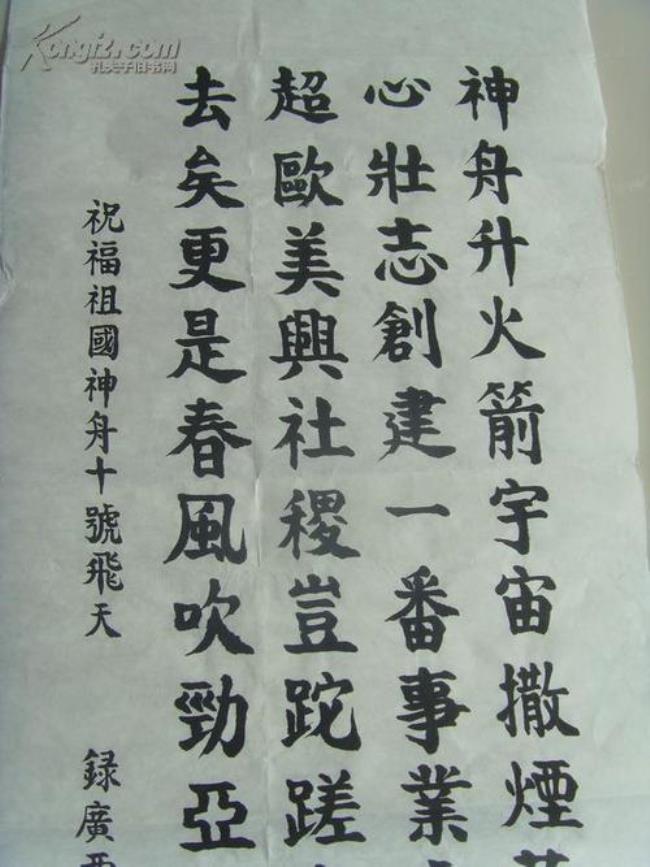 神舟升火箭宇宙撒煙
心壯志創建一番事業
超歐美興社稷豈跎蹉
去矣更是春風吹勁亞
祝福祖國神舟十號飛天
録廣西
Kongfz.com
孔夫子旧书网